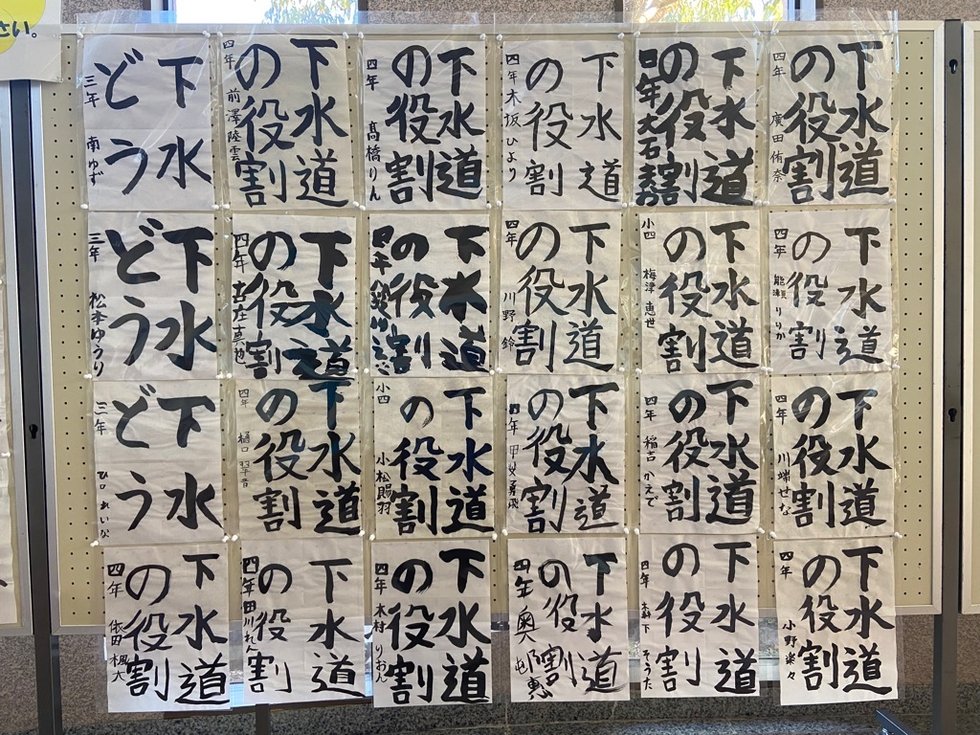 さい。
下水
どう
三年 南ゆず
下水道
の役割
四年 前澤陸雲
下水道
の役割
四年 髙橋りん
下水道
の役割
四年 木坂ひより
下水道
の役割
四年 大石
下水道
の役割
四年 廣田侑奈
下水
どう
三年 松本ゆうり
下水道
の役割
四年 古庄真也
下水道
の役割
四年
下水道
の役割
四年 川野鈴
下水道
の役割
小四 梅津恵世
下水道
の役割
四年 能瀬りりか
下水
どう
三年 ひロれいな
下水道
の役割
四年 樋口翠音
下水道
の役割
小四 小松賜羽
下水道
の役割
四年 甲斐勇飛
下水道
の役割
四年 稲吉かえで
下水道
の役割
四年 川端せな
下水道
の役割
四年 依田楓大
下水道
の役割
四年 田川れん
下水道
の役割
四年 木村りおん
下水道
の役割
四年 奥
下水道
の役割
四年 木下そうた
下水道
の役割
四年 小野楽々